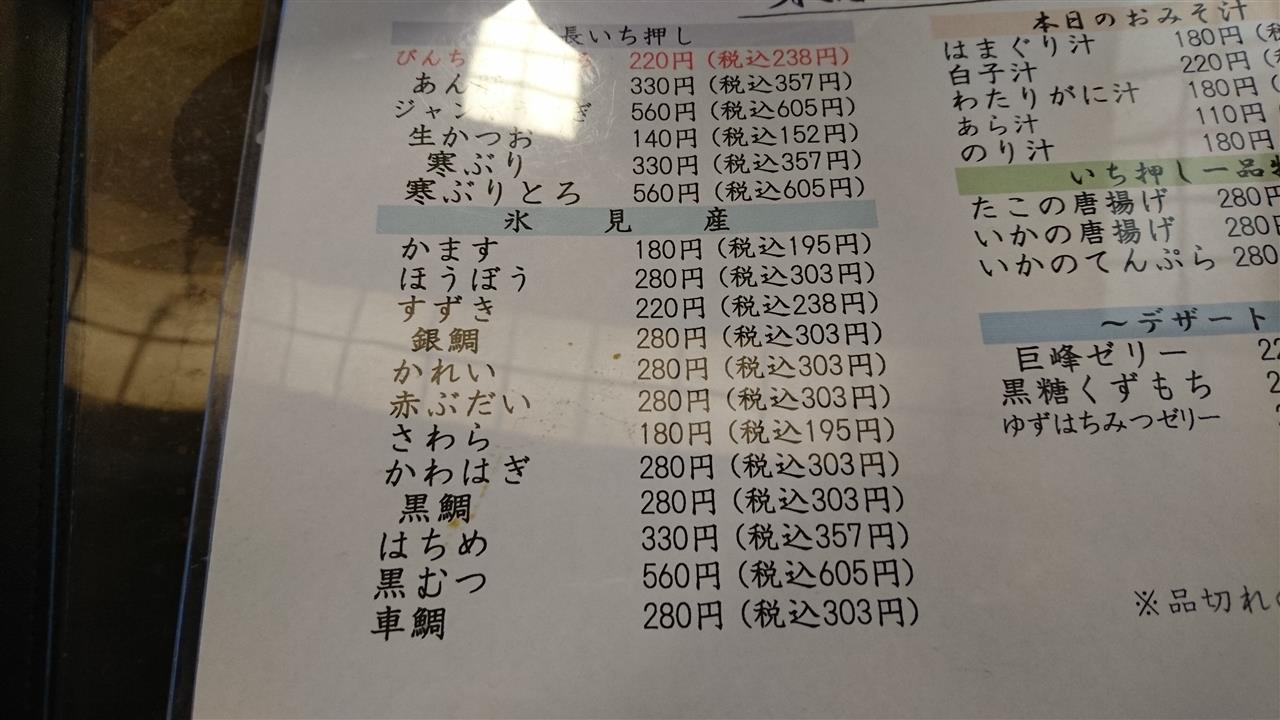 長いち押し
びんち 220円(税込238円)
あん 330円(税込357円)
ジャン 560円(税込605円)
生かつお 140円(税込152円)
寒ぶり 330円(税込357円)
寒ぶりとろ 560円(税込605円)
氷見産
かます 180円(税込195円)
ほうぼう 280円(税込303円)
すずき 220円(税込238円)
銀鯛 280円(税込303円)
かれい 280円(税込303円)
赤ぶだい 280円(税込303円)
さわら 180円(税込195円)
かわはぎ 280円(税込303円)
黒鯛 280円(税込303円)
はちめ 330円(税込357円)
黒むつ 560円(税込605円)
車鯛 280円(税込303円)
本日のおみそ汁
はまぐり汁 180円(税
白子汁 220円(
わたりがに汁 180円(
あら汁 110円
のり汁 180円
いち押し一品
たこの唐揚げ 280円
いかの唐揚げ 280円
いかのてんぷら 280
～デザート
巨峰ゼリー 22
黒糖くずもち 2
ゆずはちみつゼリー
※品切れ